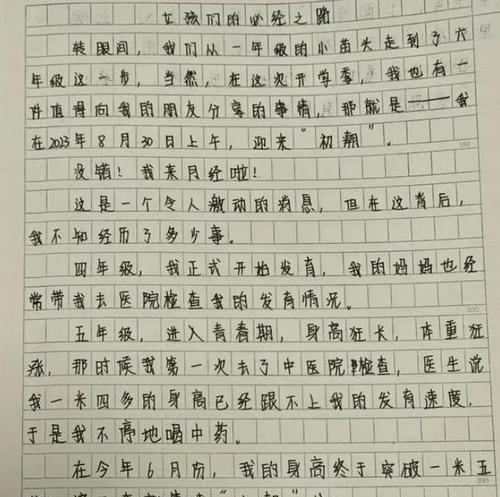 女孩们的必经之路
转眼间，我们从一年级的小苗头走到了六
年级这一步，当然，在这次开学季，我也有一
件值得向我的朋友分享的事情，那就是——我
在2023年8月30日上午，迎来“初潮”。
没错！我来月经啦！
这是一个令人激动的消息，但在这背后，
我不知经历了多少事。
四年级，我正式开始发育，我的妈妈也经
常带我去医院检查我的发育情况。
五年级，进入青春期，身高狂长，体重狂
涨，那时候我第一次去了中医院检查，医生说
我一米四多的身高已经跟不上我的发育速度，
于是我不停地喝中药。
在今年6月份，我的身高终于突破一米五